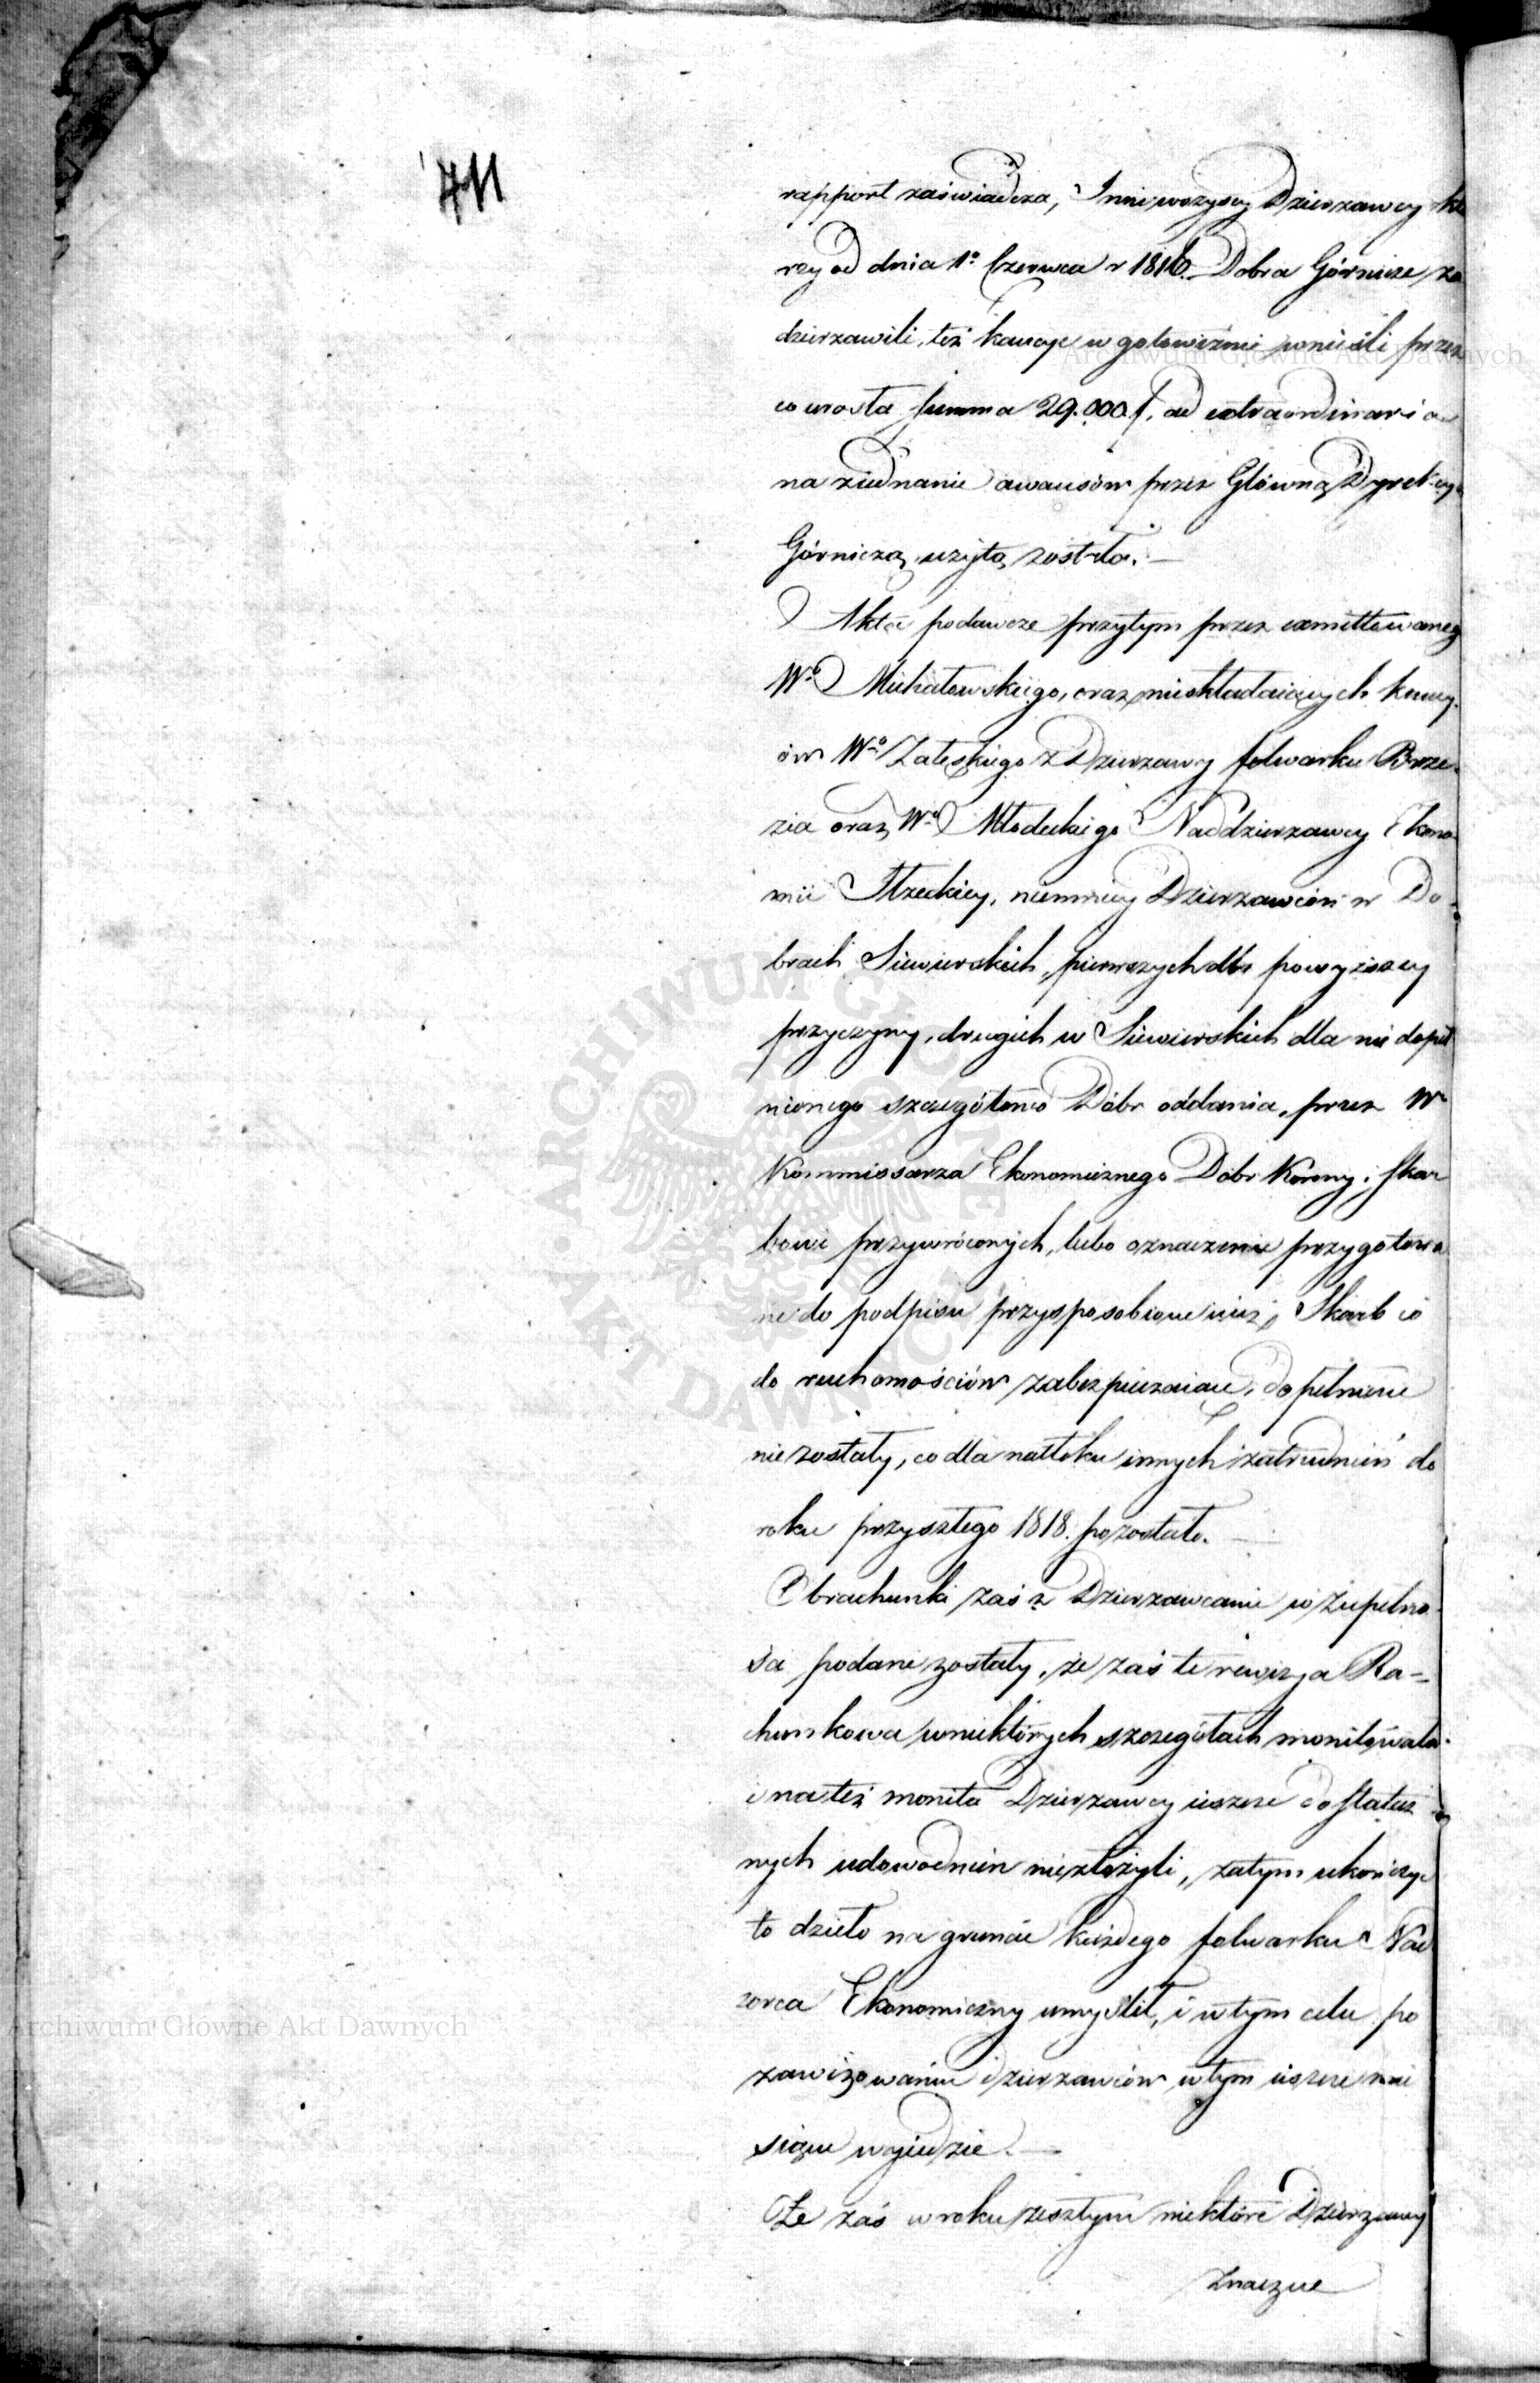 711
rapport zaświadcza, Inni wszyscy Dzierzawcy któ
rzy od dnia 1º Czerwca r 1816. Dobra Górnicze za
dzierzawili, też kaucye w gotowiznie wnieśli przez
co urosła summa 29.000 f, ad extraordinaria
na ziednanie awansów przez Główną Dyrekcyą
Górniczą użytą została.
Akta podawcze przytym przez exmittowanego
Wº Michałowskiego, oraz nieskładaiących kaucy
ów Wº Zaleskiego z Dzierzawy folwarku Brze
zia oraz Wº Młodeckiego Naddzierzawcy Ekono
mii Itzeckiey, niemniey Dzierzawców w Do
brach Siewierskich, pierwszych dla powyższey
przyczyny, drugich w Siewierskich dla nie dopeł
nionego szczegółowo Dóbr oddania, przez W
Kommissarza Ekonomicznego Dóbr Korony i Skar
bowi przywróconych, lubo oznaczenie przygotowa
ne do podpisu przysposobione iuż, Skarb co
do ruchomościów zabezpieczaiące, dopełnione
nie zostały, co dla natłoku innych zatrudnień do
roku przyszłego 1818. pozostało.
Obrachunki zaś z Dzierzawcami w zupełno
ści podane zostały, że zaś te rewizya Ra-
chunkowa w niektórych szczegółach monitowała
i na też monita Dzierzawcy ieszcze dostatecz
nych udowodnień niezłożyli, zatym ukończyć
to dzieło na gruncie każdego folwarku Nad
zorca Ekonomiczny umyślił, i w tym celu po
zawizowaniu dzierzawców w tym ieszcze mie
siącu wyiedzie.
Że zaś w roku zeszłym niektóre Dzierzawy
znaczne
Archiwum Główne Akt Dawnych
Archiwum Główne Akt Dawnych
ARCHIWUM GŁÓWNE AKT DAWNYCH